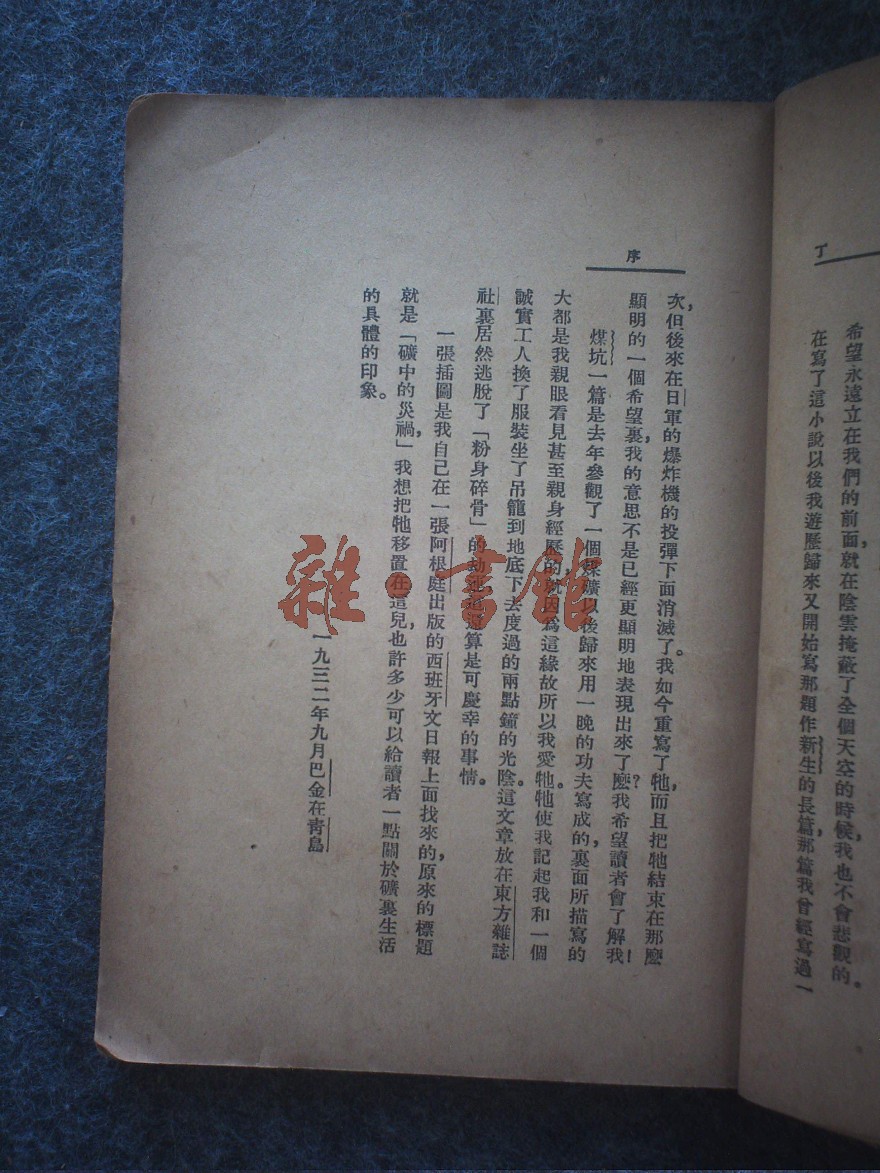 丁
希望永遠立在我們的前面，就在陰雲掩蔽了全個天空的時候，我也不會悲觀的。
在寫了這小說以後我遊歷歸來又開始寫那題作新生的長篇，那篇我曾經寫過一
序
次，但後來在日軍的爆炸機的投彈下面消滅了。我如今重寫了牠，而且把牠結束在那麼
顯明的一個希望裏，我的意思不是已經更顯明地表現出來了麼？我希望讀者會了解我！
煤坑一篇是去年參觀了一個煤礦以後歸來用一晚的功夫寫成的，裏面所描寫的
大都是我親眼看見甚至親身經歷的，就因爲這緣故所以我愛牠。牠使我記起我和一個
誠實工人換了服裝坐了吊籠到地底下去度過的兩點鐘的光陰。這文章放在東方雜誌
社裏居然逃脫了「粉身碎骨」的劫運，這還算是可慶幸的事情。
一張插圖是我自己在一張阿根庭出版的西班牙文日報上面找來的，原來的標題
就是「礦中的災禍」，我想把牠移置在這兒，也許多少可以給讀者一點關於礦裏生活
的具體的印象。
一九三二年九月巴金在青島
雜·書館